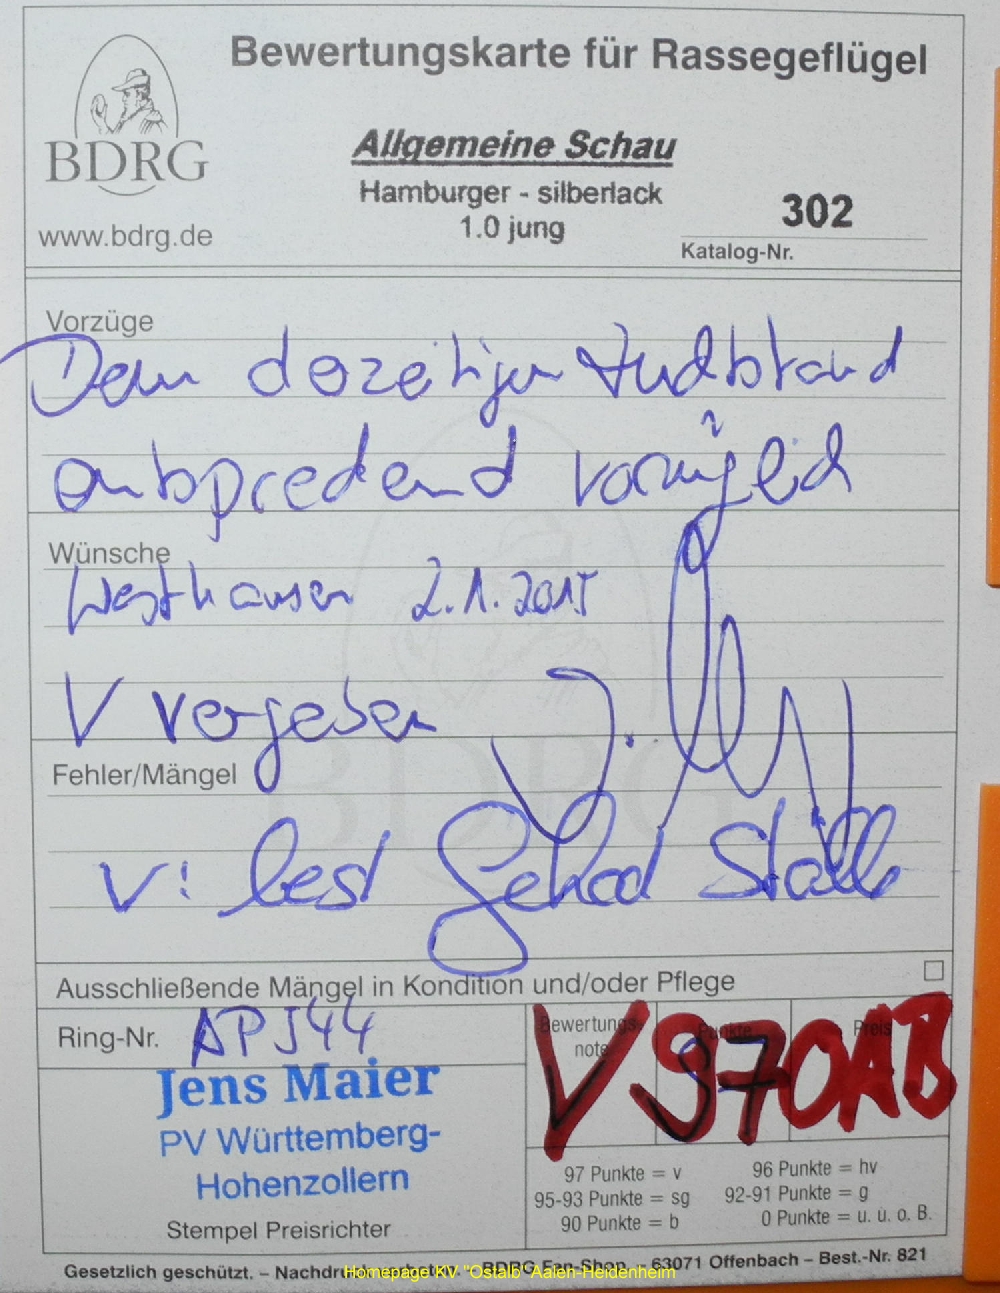 Bewertungskarte für Rassegeflügel
BDRG
www.bdrg.de
Allgemeine Schau
Hamburger - silberlack
1.0 jung
302
Katalog-Nr.
Vorzüge
Dem derzeitigen Zuchtstand
entsprechend vorzüglich
Wünsche
Westhausen 2.1.2015
V vergeben
Fehler/Mängel
V: best
Ausschließende Mängel in Kondition und/oder Pflege
Ring-Nr. APJ44
Jens Maier
PV Württemberg-
Hohenzollern
Stempel Preisrichter
Bewertungs-
note
Punkte
Preis
V 97 OAB
97 Punkte = v
96 Punkte = hv
95-93 Punkte = sg
92-91 Punkte = g
90 Punkte = b
0 Punkte = u. ü. o. B.
Gesetzlich geschützt. – BDRG Fan-Shop 63071 Offenbach – Best.-Nr. 821
Homepage KV "Ostalb" Aalen-Heidenheim